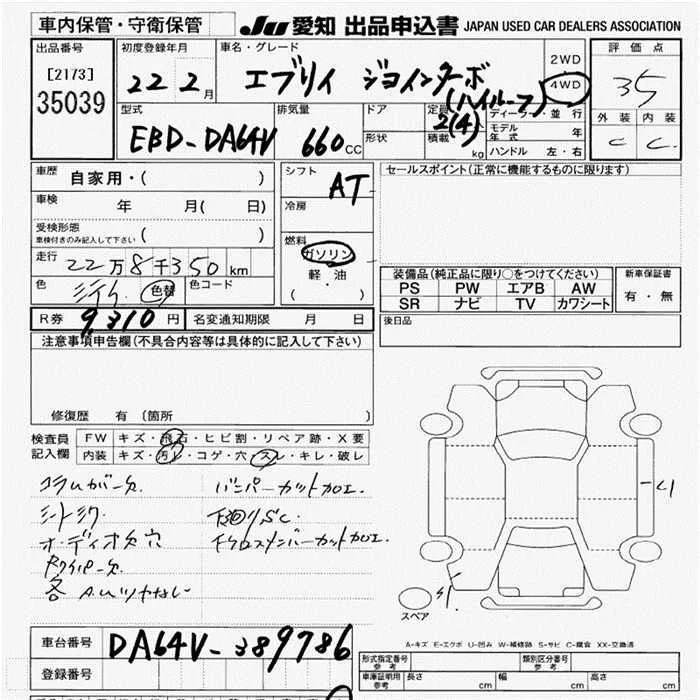 車内保管・守衛保管
JU 愛知 出品申込書 JAPAN USED CAR DEALERS ASSOCIATION
出品番号
[2173]
35039
初度登録年月
22 2月
車名・グレード
エブリィ ジョインターボ
(ハイルーフ)
2WD
4WD
評価点
35
外装 内装
C C
型式
EBD-DA64V
排気量
660CC
ドア
形状
定員
2(4)
積載
kg
ディーラー・並行
モデル年式 年
ハンドル 左・右
車歴 自家用・( )
車検 年 月( 日)
受検形態
車検付きのみ記入して下さい ( )
走行 22万8千350km
色 色替 色コード
シフト AT
冷房
燃料
ガソリン
軽・油
( ・ )
セールスポイント(正常に機能するものに限ります)
装備品(純正品に限り○をつけてください)
PS PW エアB AW
SR ナビ TV カワシート
新車保証書
有・無
後日品
R券 9,310円 名変通知期限 月 日
注意事項申告欄(不具合内容等は具体的に記入して下さい)
修復歴 有(箇所 )
検査員記入欄
FW キズ・飛石・ヒビ割・リペア跡・X要
内装 キズ・汚レ・コゲ・穴・スレ・キレ・破レ
コラムカバー欠
バンパーカット加工
下回りSC
オーディオ欠穴
下クロスメンバーカット加工
Rワイパー欠
スペア
A-キズ E-エクボ U-凹み W-補修跡 S-サビ C-腐食 XX-交換済
車台番号 DA64V-389786
登録番号
形式指定番号 参考
類別区分番号 参考
車庫証明用 参考 長さ cm 幅 cm 高さ cm